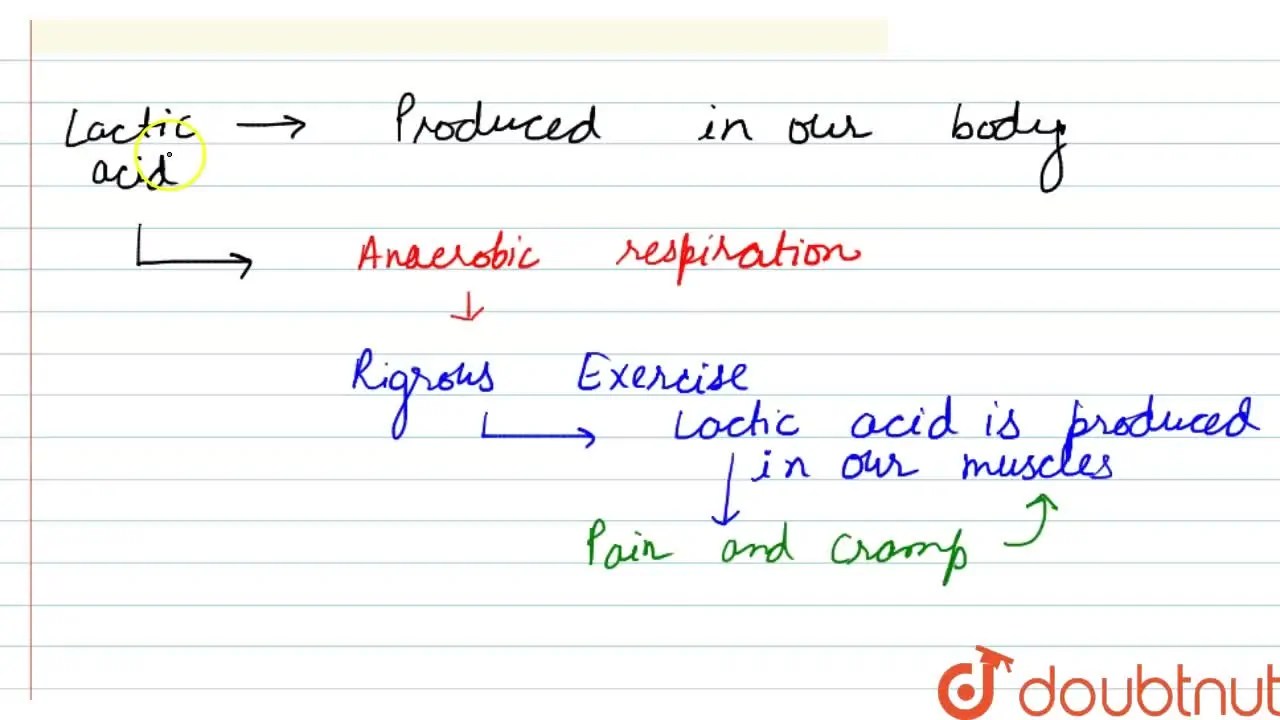 Lactic → Produced in our body
acid
Anaerobic respiration
Rigrous Exercise
Lactic acid is produced
in our muscles
Pain and cramp
doubtnut